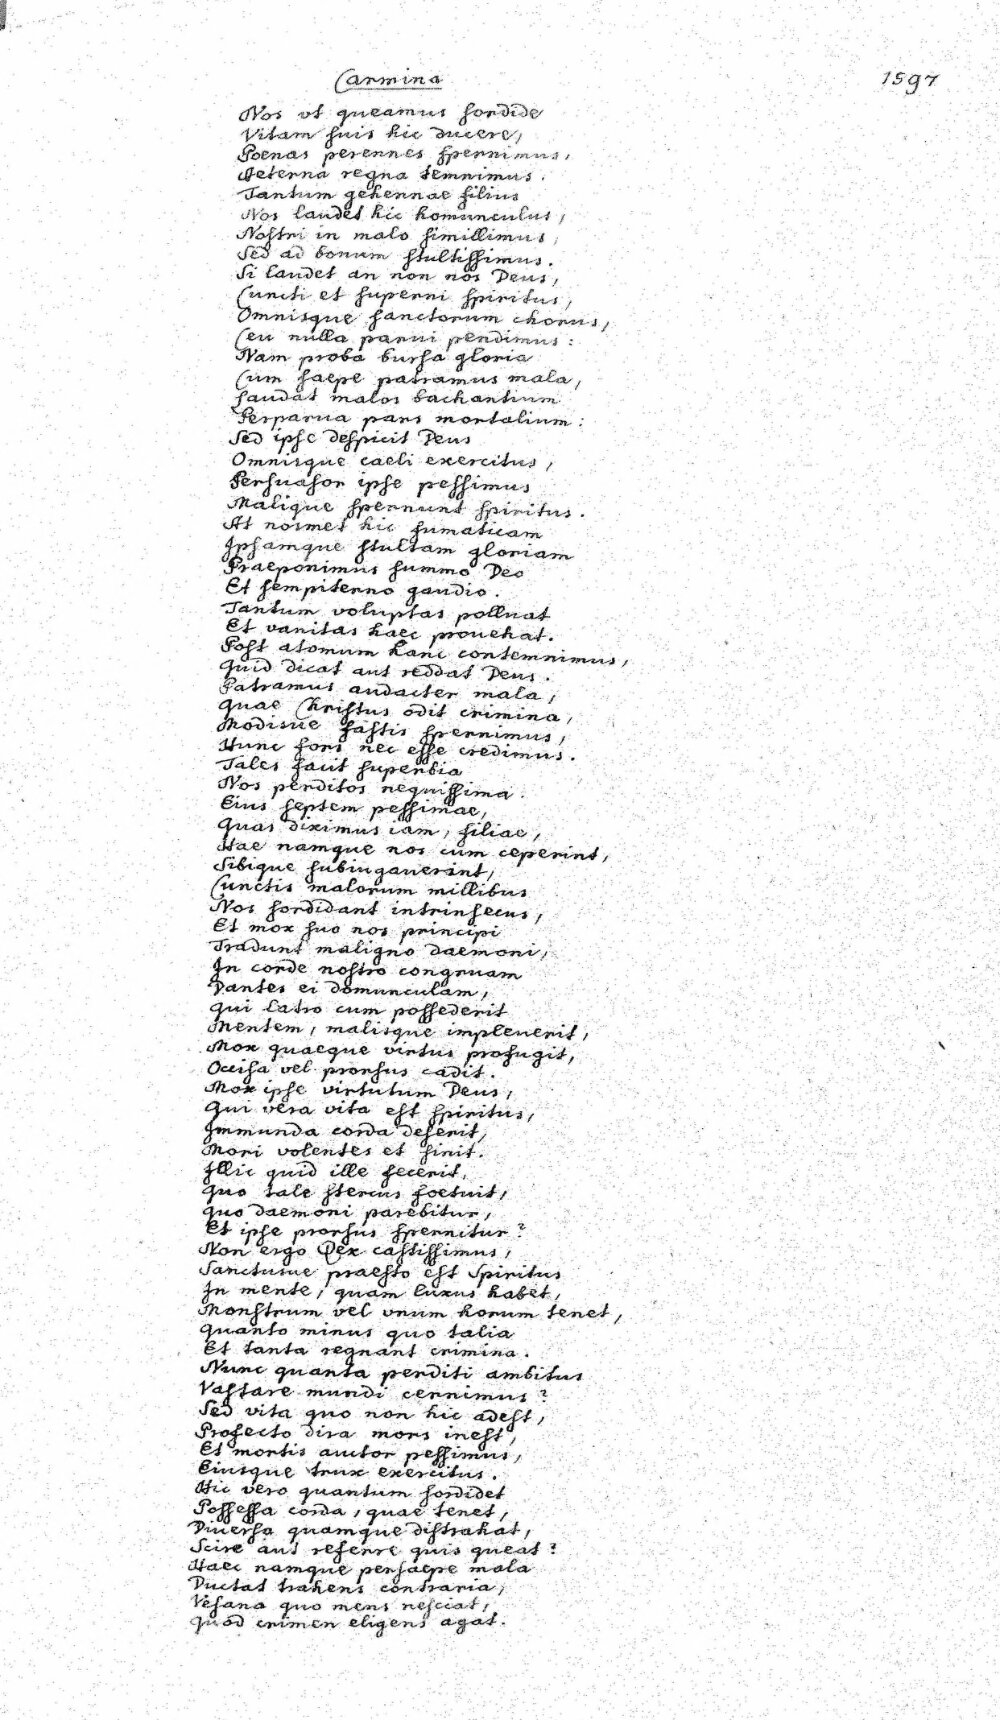 Carmina
1597
Nos vt queamus sordide
Vitam suis hic ducere,
Poenas perennes spernimus,
Aeterna regna temnimus.
Tantum gehennae filius
Nos laudet hic homunculus,
Nostri in malo simillimus,
Sed ad bonum stultissimus.
Si laudet an non nos Deus,
Cuncti et superni spiritus,
Omnisque sanctorum chorus,
Ceu nulla parui pendimus:
Nam proba bursa gloria
Cum saepe patramus mala,
Laudat malos bachantium
Perparua pars mortalium:
Sed ipse despicit Deus
Omnisque caeli exercitus,
Persuasor ipse pessimus
Malique spernunt spiritus.
At nosmet hic fumaticam
Ipsamque stultam gloriam
Praeponimus summo Deo
Et sempiterno gaudio.
Tantum voluptas polluat
Et vanitas haec prouehat.
Post atomum hanc contemnimus,
Quid dicat aut reddat Deus.
Patramus audacter mala,
Quae Christus odit crimina,
Modisue fastis spernimus,
Hunc fors nec esse credimus.
Tales facit superbia
Nos perditos nequissima.
Eius septem pessimae,
Quas diximus iam, filiae,
Hae namque nos cum ceperint,
Sibique subiugauerint,
Cunctis malorum millibus
Nos sordidant intrinsecus,
Et mox suo nos principi
Tradunt maligno daemoni,
In corde nostro congruam
Dantes ei domunculam,
Qui latro cum possederit
Mentem, malisque impleuerit,
Mox quaeque virtus profugit,
Occisa vel prorsus cadit.
Mox ipse virtutum Deus,
Qui vera vita est spiritus,
Immunda corda deserit,
Mori volentes et sinit.
Illic quid ille fecerit,
Quo tale stercus foetuit,
Quo daemoni parebitur,
Et ipse prorsus spernitur?
Non ergo Rex castissimus,
Sanctusue praesto est Spiritus
In mente, quam luxus habet,
Monstrum vel vnum horum tenet,
Quanto minus quo talia
Et tanta regnant crimina.
Nunc quanta perditi ambitus
Vastare mundi cernimus?
Sed vita quo non hic adest,
Profecto dira mors inest,
Et mortis auctor pessimus,
Eiusque trux exercitus.
Hic vero quantum sordidet
Possessa corda, quae tenet,
Diuersa quamque distrahat,
Scire aut referre quis queat?
Haec namque persaepe mala
Ductat trahens contraria,
Vesana quo mens nesciat,
Quod crimen eligens agat.